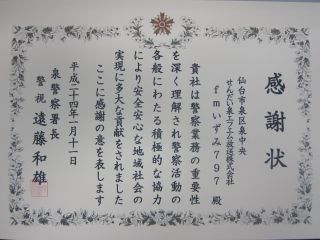 感謝状
仙台市泉区泉中央
せんだい泉エフエム放送株式会社
fmいずみ797 殿
貴社は警察業務の重要性
を深く理解され警察活動の
各般にわたる積極的な協力
により安全安心な地域社会の
実現に多大な貢献をされました
ここに感謝の意を表します
平成二十四年一月十一日
泉警察署長
警視 遠藤和雄